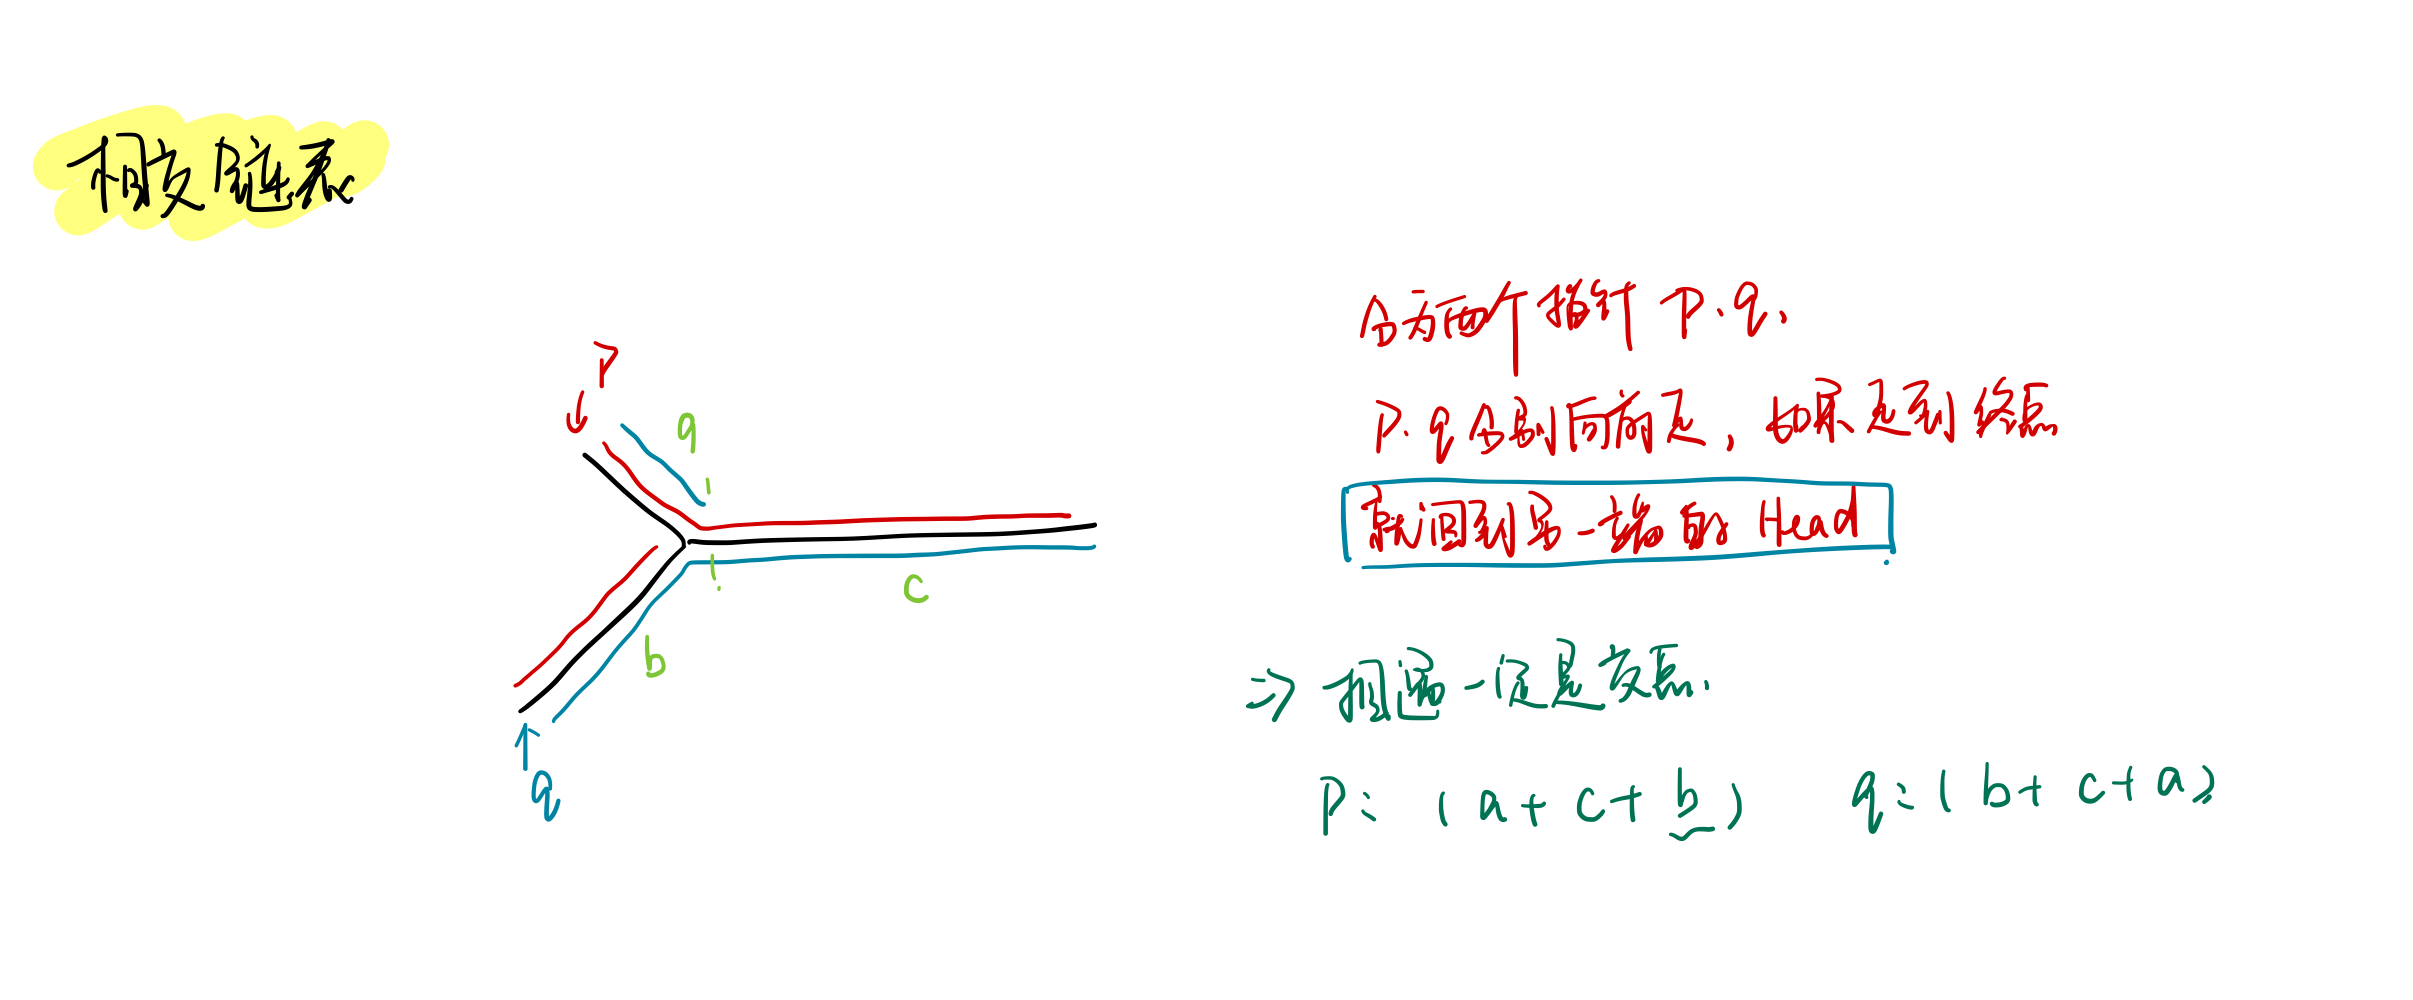 相交链表
P
q
b
c
q
分为两个指针 P.q.
P.q分别向前走，如果走到终点
就回到另一端的 Head.
=> 相遇一定是交点.
P: (a+c+b) q:(b+c+a)